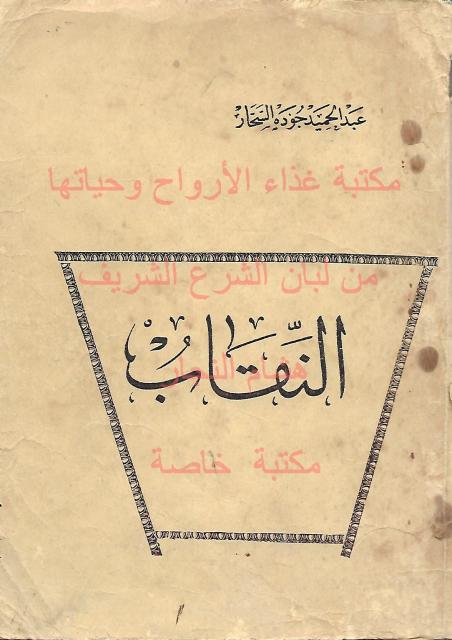 عبد الحميد جوده السحار
مكتبة غذاء الأرواح وحياتها
من لبان الشرع الشريف
النقاب
هشام النجار
مكتبة خاصة